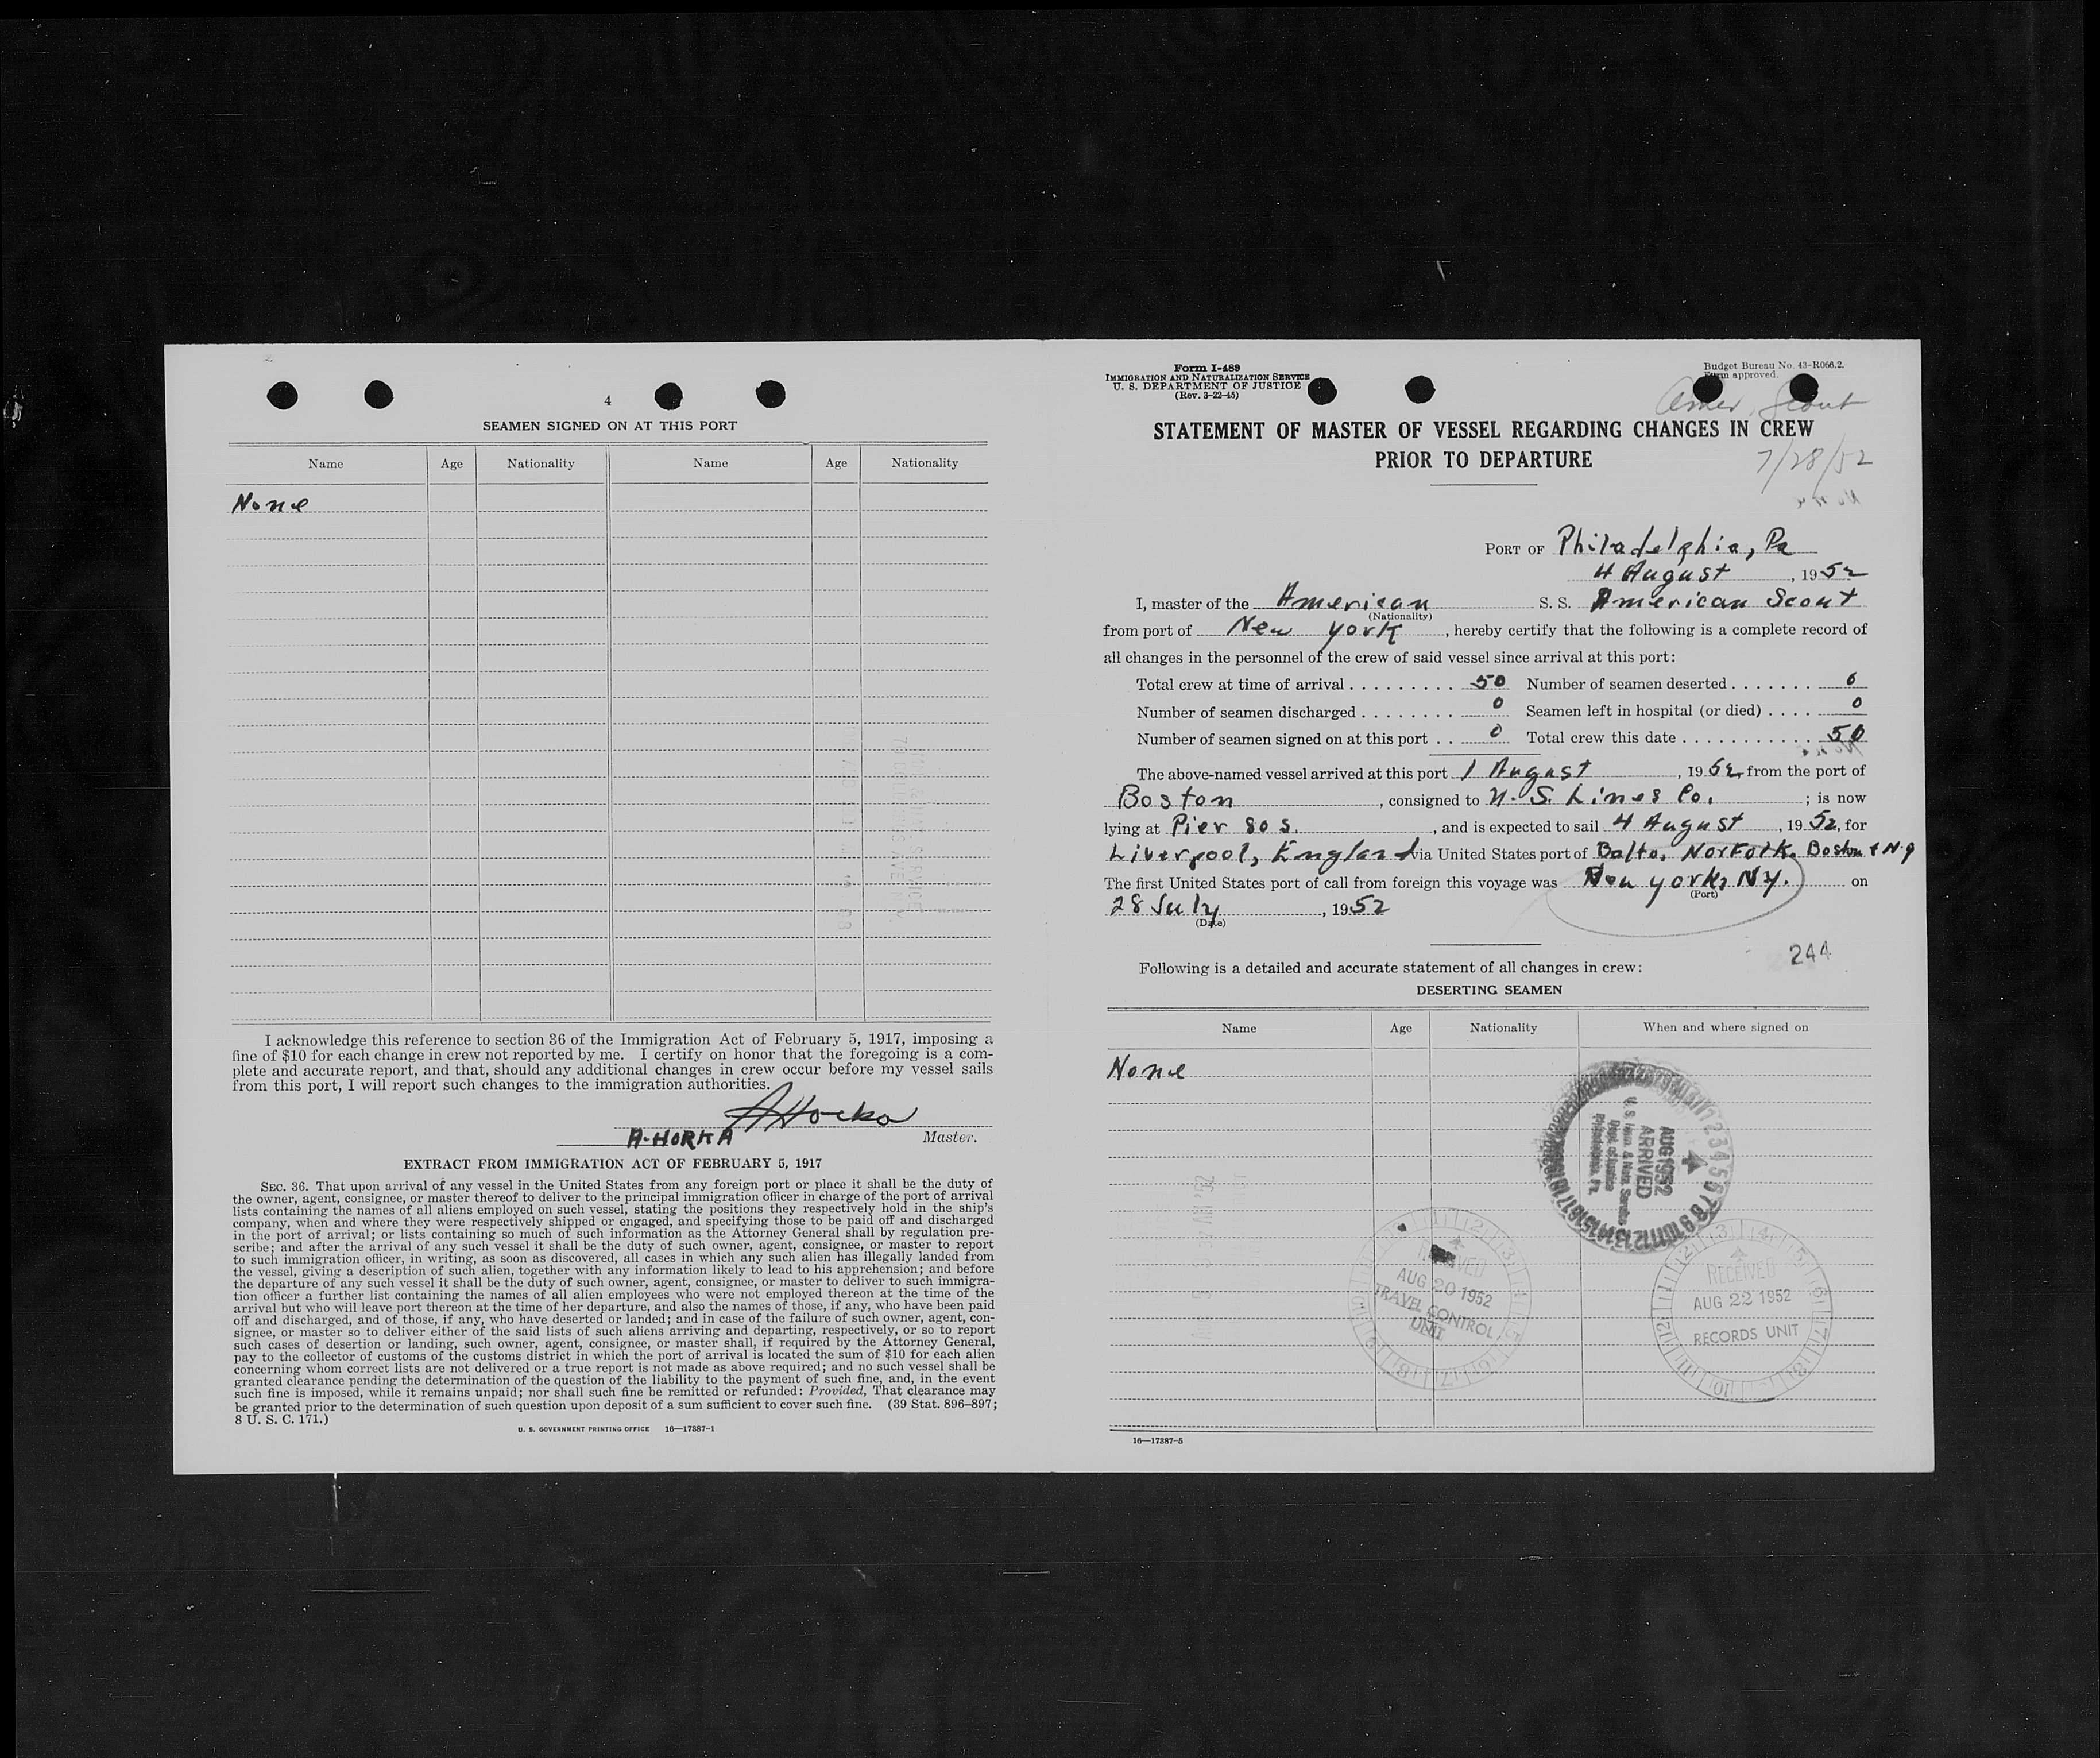 4
SEAMEN SIGNED ON AT THIS PORT
Name Age Nationality Name Age Nationality
None
I acknowledge this reference to section 36 of the Immigration Act of February 5, 1917, imposing a
fine of $10 for each change in crew not reported by me. I certify on honor that the foregoing is a com-
plete and accurate report, and that, should any additional changes in crew occur before my vessel sails
from this port, I will report such changes to the immigration authorities.
A. HORKA Master.
EXTRACT FROM IMMIGRATION ACT OF FEBRUARY 5, 1917
SEC. 36. That upon arrival of any vessel in the United States from any foreign port or place it shall be the duty of
the owner, agent, consignee, or master thereof to deliver to the principal immigration officer in charge of the port of arrival
lists containing the names of all aliens employed on such vessel, stating the positions they respectively hold in the ship's
company, when and where they were respectively shipped or engaged, and specifying those to be paid off and discharged
in the port of arrival; or lists containing so much of such information as the Attorney General shall by regulation pre-
scribe; and after the arrival of any such vessel it shall be the duty of such owner, agent, consignee, or master to report
to such immigration officer, in writing, as soon as discovered, all cases in which any such alien has illegally landed from
the vessel, giving a description of such alien, together with any information likely to lead to his apprehension; and before
the departure of any such vessel it shall be the duty of such owner, agent, consignee, or master to deliver to such immigra-
tion officer a further list containing the names of all alien employees who were not employed thereon at the time of the
arrival but who will leave port thereon at the time of her departure, and also the names of those, if any, who have been paid
off and discharged, and of those, if any, who have deserted or landed; and in case of the failure of such owner, agent, con-
signee, or master so to deliver either of the said lists of such aliens arriving and departing, respectively, or so to report
such cases of desertion or landing, such owner, agent, consignee, or master shall, if required by the Attorney General,
pay to the collector of customs of the customs district in which the port of arrival is located the sum of $10 for each alien
concerning whom correct lists are not delivered or a true report is not made as above required; and no such vessel shall be
granted clearance pending the determination of the question of the liability to the payment of such fine, and, in the event
such fine is imposed, while it remains unpaid; nor shall such fine be remitted or refunded: Provided, That clearance may
be granted prior to the determination of such question upon deposit of a sum sufficient to cover such fine. (39 Stat. 896–897;
8 U. S. C. 171.)
U. S. GOVERNMENT PRINTING OFFICE 16—17387-1
Form I-489
IMMIGRATION AND NATURALIZATION SERVICE
U. S. DEPARTMENT OF JUSTICE
(Rev. 3-22-45)
Budget Bureau No. 43-R066.2.
Form approved.
Amer. Scout
STATEMENT OF MASTER OF VESSEL REGARDING CHANGES IN CREW
PRIOR TO DEPARTURE
7/28/52
PORT OF Philadelphia, Pa
4 August, 1952
I, master of the American S. S. American Scout
(Nationality)
from port of New York, hereby certify that the following is a complete record of
all changes in the personnel of the crew of said vessel since arrival at this port:
Total crew at time of arrival . . . . . . . . . . 50 Number of seamen deserted . . . . . . . 0
Number of seamen discharged . . . . . . . . 0 Seamen left in hospital (or died) . . . . 0
Number of seamen signed on at this port . . 0 Total crew this date . . . . . . . . . . . . 50
The above-named vessel arrived at this port 1 August, 1952 from the port of
Boston, consigned to U. S. Lines Co.; is now
lying at Pier 80 S., and is expected to sail 4 August, 1952, for
Liverpool, England via United States port of Balto, Norfolk, Boston & N.Y
The first United States port of call from foreign this voyage was New York, NY. on
(Port)
28 July, 1952
(Date)
244
Following is a detailed and accurate statement of all changes in crew:
DESERTING SEAMEN
Name Age Nationality When and where signed on
None
AUG 1 1952
ARRIVED
U. S. Imm. & Natz. Service
Dept. of Justice
Philadelphia, Pa.
RECEIVED
AUG 20 1952
TRAVEL CONTROL
UNIT
RECEIVED
AUG 22 1952
RECORDS UNIT
16—17387-5